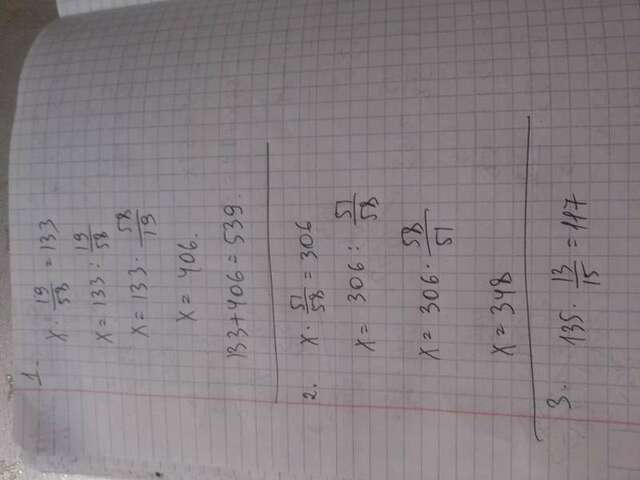 1.
x · 19/58 = 133
x = 133 : 19/58
x = 133 · 58/19
x = 406.
133 + 406 = 539.
2. x · 51/58 = 306
x = 306 : 51/58
x = 306 · 58/51
x = 348
3. 135 · 13/15 = 117